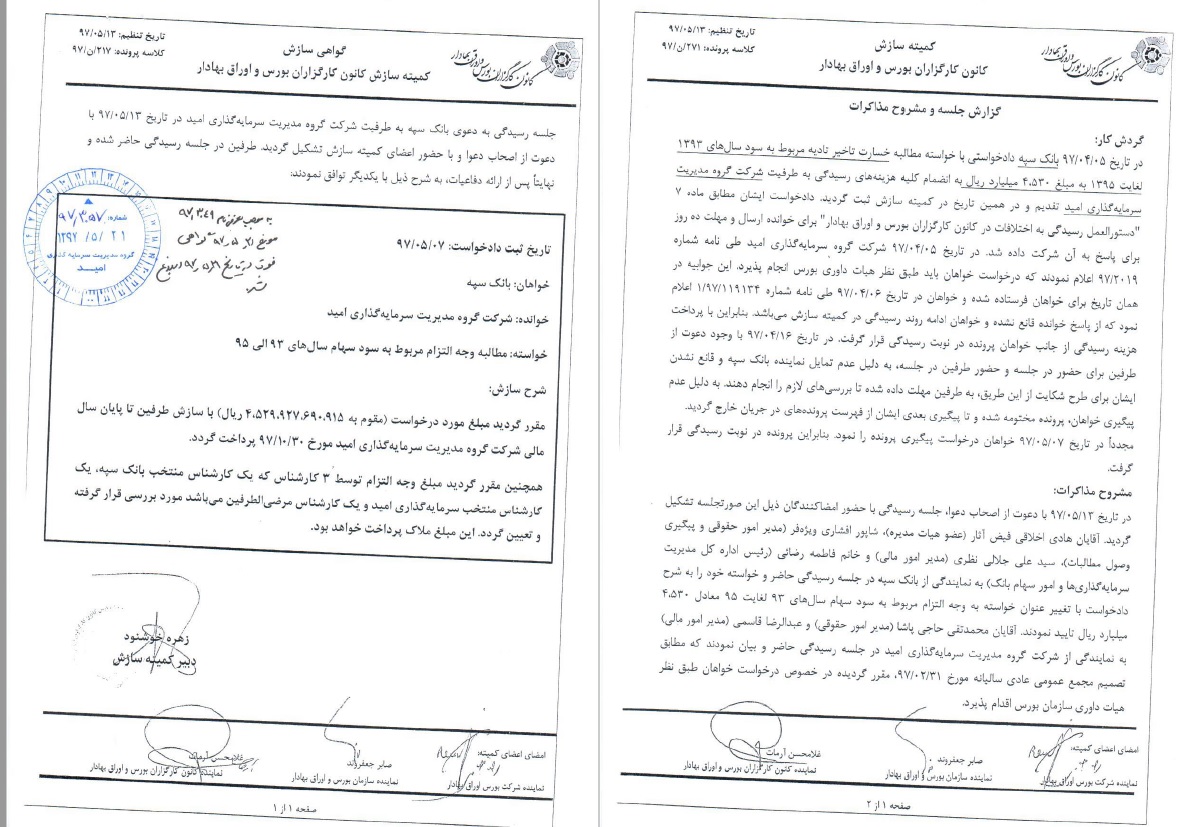 کمیته سازش
کانون کارگزاران بورس و اوراق بهادار
تاریخ تنظیم: ۹۷/۰۵/۱۳
کلاسه پرونده: ۲۷۱/ن/۹۷
کانون کارگزاران بورس و اوراق بهادار
گزارش جلسه و مشروح مذاکرات
گردش کار:
در تاریخ ۹۷/۰۴/۰۵ بانک سپه دادخواستی با خواسته مطالبه خسارت تاخیر تادیه مربوط به سود سال‌های ۱۳۹۳
لغایت ۱۳۹۵ به مبلغ ۴،۵۳۰ میلیارد ریال به انضمام کلیه هزینه‌های رسیدگی به طرفیت شرکت گروه مدیریت
سرمایه‌گذاری امید تقدیم و در همین تاریخ در کمیته سازش ثبت گردید. دادخواست ایشان مطابق ماده ۷
"دستورالعمل رسیدگی به اختلافات در کانون کارگزاران بورس و اوراق بهادار" برای خوانده ارسال و مهلت ده روز
برای پاسخ به آن شرکت داده شد. در تاریخ ۹۷/۰۴/۰۵ شرکت گروه سرمایه‌گذاری امید طی نامه شماره
۹۷/۲۰۱۹ اعلام نمودند که درخواست خواهان باید طبق نظر هیات داوری بورس انجام پذیرد. این جوابیه در
همان تاریخ برای خواهان فرستاده شده و خواهان در تاریخ ۹۷/۰۴/۰۶ طی نامه شماره ۱/۹۷/۱۱۹۱۳۴ اعلام
نمود که از پاسخ خوانده قانع نشده و خواهان ادامه روند رسیدگی در کمیته سازش می‌باشد. بنابراین با پرداخت
هزینه رسیدگی از جانب خواهان پرونده در نوبت رسیدگی قرار گرفت. در تاریخ ۹۷/۰۴/۱۶ با وجود دعوت از
طرفین برای حضور در جلسه و حضور طرفین در جلسه، به دلیل عدم تمایل نماینده بانک سپه و قانع نشدن
ایشان برای طرح شکایت از این طریق، به طرفین مهلت داده شده تا بررسی‌های لازم را انجام دهند. به دلیل عدم
پیگیری خواهان، پرونده مختومه شده و تا پیگیری بعدی ایشان از فهرست پرونده‌های در جریان خارج گردید.
مجدداً در تاریخ ۹۷/۰۵/۰۷ خواهان درخواست پیگیری پرونده را نمود. بنابراین پرونده در نوبت رسیدگی قرار
گرفت.
مشروح مذاکرات:
در تاریخ ۹۷/۰۵/۱۳ با دعوت از اصحاب دعوا، جلسه رسیدگی با حضور امضاکنندگان ذیل این صورتجلسه تشکیل
گردید. آقایان هادی اخلاقی فیض آثار (عضو هیات مدیره)، شاپور افشاری ویژه‌فر (مدیر امور حقوقی و پیگیری
وصول مطالبات)، سید علی جلالی نظری (مدیر امور مالی) و خانم فاطمه رضائی (رئیس اداره کل مدیریت
سرمایه‌گذاری‌ها و امور سهام بانک) به نمایندگی از بانک سپه در جلسه رسیدگی حاضر و خواسته خود را به شرح
دادخواست با تغییر عنوان خواسته به وجه التزام مربوط به سود سهام سال‌های ۹۳ لغایت ۹۵ معادل ۴،۵۳۰
میلیارد ریال تایید نمودند. آقایان محمدتقی حاجی پاشا (مدیر امور حقوقی) و عبدالرضا قاسمی (مدیر امور مالی)
به نمایندگی از شرکت گروه مدیریت سرمایه‌گذاری امید در جلسه رسیدگی حاضر و بیان نمودند که مطابق
تصمیم مجمع عمومی عادی سالیانه مورخ ۹۷/۰۲/۳۱، مقرر گردیده در خصوص درخواست خواهان طبق نظر
هیات داوری سازمان بورس اقدام پذیرد.
امضای اعضای کمیته:
نماینده شرکت بورس اوراق بهادار
صابر جعفروند
نماینده سازمان بورس و اوراق بهادار
غلامحسن آرمات
نماینده کانون کارگزاران بورس و اوراق بهادار
صفحه ۱ از ۲
گواهی سازش
کمیته سازش کانون کارگزاران بورس و اوراق بهادار
تاریخ تنظیم: ۹۷/۰۵/۱۳
کلاسه پرونده: ۲۱۷/ن/۹۷
کانون کارگزاران بورس و اوراق بهادار
جلسه رسیدگی به دعوی بانک سپه به طرفیت شرکت گروه مدیریت سرمایه‌گذاری امید در تاریخ ۹۷/۰۵/۱۳ با
دعوت از اصحاب دعوا و با حضور اعضای کمیته سازش تشکیل گردید. طرفین در جلسه رسیدگی حاضر شده و
نهایتاً پس از ارائه دفاعیات، به شرح ذیل با یکدیگر توافق نمودند:
شماره: ۹۷،۳۰۵۷
۱۳۹۷ /۵ /۲۱
گروه مدیریت سرمایه گذاری
امیـــد
تاریخ ثبت دادخواست: ۹۷/۰۵/۰۷
خواهان: بانک سپه
خوانده: شرکت گروه مدیریت سرمایه‌گذاری امید
خواسته: مطالبه وجه التزام مربوط به سود سهام سال‌های ۹۳ الی ۹۵
شرح سازش:
مقرر گردید مبلغ مورد درخواست (مقوم به ۴،۵۲۹،۹۲۷،۶۹۰،۹۱۵ ریال) با سازش طرفین تا پایان سال
مالی شرکت گروه مدیریت سرمایه‌گذاری امید مورخ ۹۷/۱۰/۳۰ پرداخت گردد.
همچنین مقرر گردید مبلغ وجه التزام توسط ۳ کارشناس که یک کارشناس منتخب بانک سپه، یک
کارشناس منتخب سرمایه‌گذاری امید و یک کارشناس مرضی‌الطرفین می‌باشد مورد بررسی قرار گرفته
و تعیین گردد. این مبلغ ملاک پرداخت خواهد بود.
زهره خوشنود
دبیر کمیته سازش
امضای اعضای کمیته:
نماینده شرکت بورس اوراق بهادار
صابر جعفروند
نماینده سازمان بورس و اوراق بهادار
غلامحسن آرمات
نماینده کانون کارگزاران بورس و اوراق بهادار
صفحه ۱ از ۱